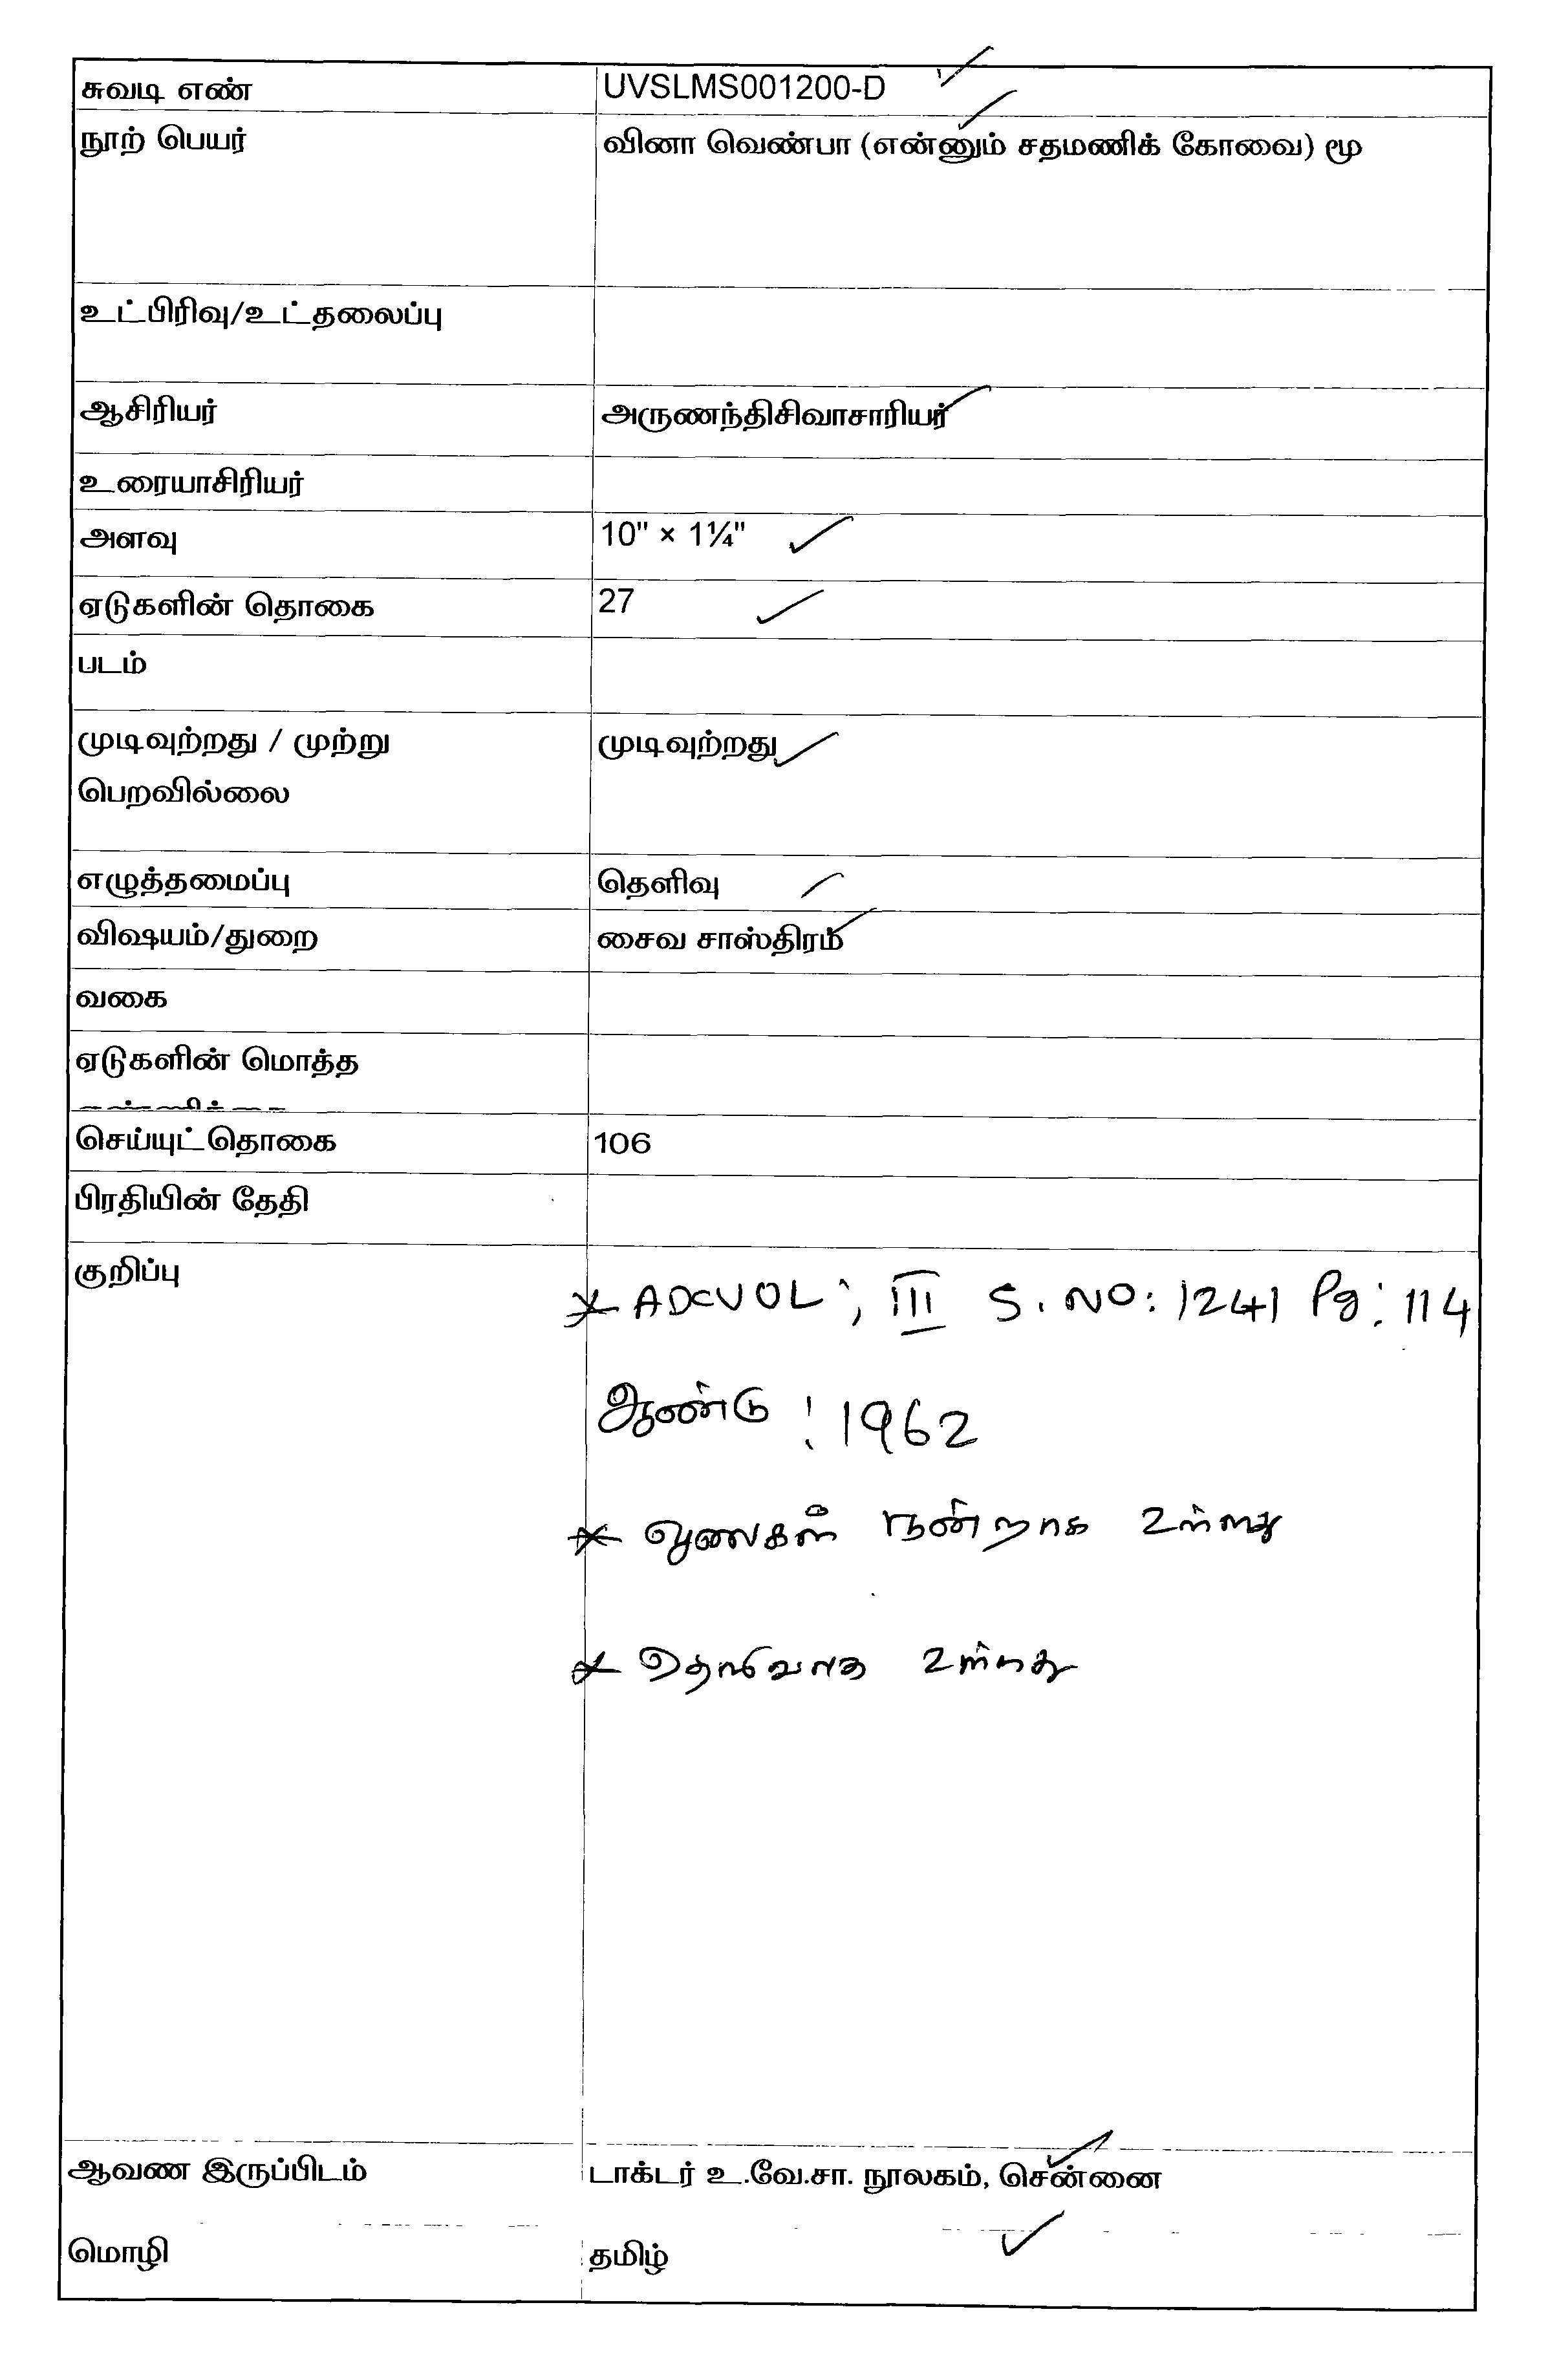 சுவடி எண் UVSLMS001200-D
நூற் பெயர் வினா வெண்பா (என்னும் சதமணிக் கோவை) மூ
உட்பிரிவு/உட்தலைப்பு
ஆசிரியர் அருணந்திசிவாசாரியர்
உரையாசிரியர்
அளவு 10" × 1¼"
ஏடுகளின் தொகை 27
படம்
முடிவுற்றது / முற்று முடிவுற்றது
பெறவில்லை
எழுத்தமைப்பு தெளிவு
விஷயம்/துறை சைவ சாஸ்திரம்
வகை
ஏடுகளின் மொத்த
செய்யுட்தொகை 106
பிரதியின் தேதி
குறிப்பு
* ADCVOL ; III S. NO: 1241 Pg: 114
ஆண்டு : 1962
* நன்றாக உள்ளது
* தெளிவாக உள்ளது
ஆவண இருப்பிடம் டாக்டர் உ.வே.சா. நூலகம், சென்னை
மொழி தமிழ்